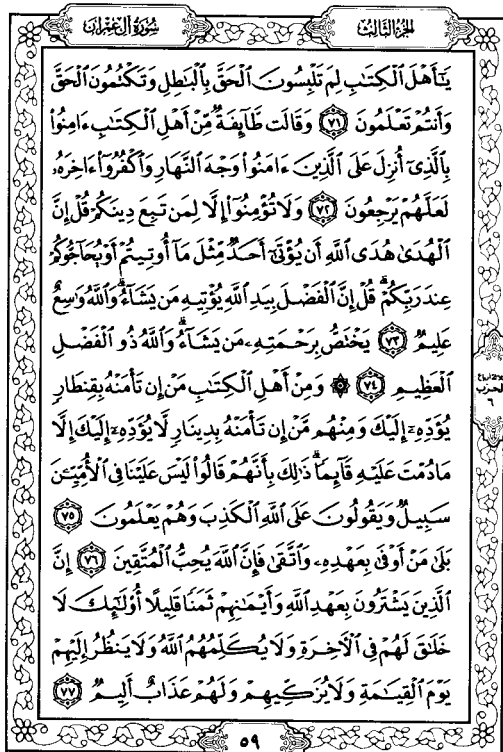 سُورَةُ آلِ عِمْرَان
الجُزءُ الثَّالِث
يَٰٓأَهۡلَ ٱلۡكِتَٰبِ لِمَ تَلۡبِسُونَ ٱلۡحَقَّ بِٱلۡبَٰطِلِ وَتَكۡتُمُونَ ٱلۡحَقَّ
وَأَنتُمۡ تَعۡلَمُونَ ٧١ وَقَالَت طَّآئِفَةٞ مِّنۡ أَهۡلِ ٱلۡكِتَٰبِ ءَامِنُواْ
بِٱلَّذِيٓ أُنزِلَ عَلَى ٱلَّذِينَ ءَامَنُواْ وَجۡهَ ٱلنَّهَارِ وَٱكۡفُرُوٓاْ ءَاخِرَهُۥ
لَعَلَّهُمۡ يَرۡجِعُونَ ٧٢ وَلَا تُؤۡمِنُوٓاْ إِلَّا لِمَن تَبِعَ دِينَكُمۡ قُلۡ إِنَّ
ٱلۡهُدَىٰ هُدَى ٱللَّهِ أَن يُؤۡتَىٰٓ أَحَدٞ مِّثۡلَ مَآ أُوتِيتُمۡ أَوۡ يُحَآجُّوكُمۡ
عِندَ رَبِّكُمۡۗ قُلۡ إِنَّ ٱلۡفَضۡلَ بِيَدِ ٱللَّهِ يُؤۡتِيهِ مَن يَشَآءُۗ وَٱللَّهُ وَٰسِعٌ
عَلِيمٞ ٧٣ يَخۡتَصُّ بِرَحۡمَتِهِۦ مَن يَشَآءُۗ وَٱللَّهُ ذُو ٱلۡفَضۡلِ
ٱلۡعَظِيمِ ٧٤ ۞ وَمِنۡ أَهۡلِ ٱلۡكِتَٰبِ مَنۡ إِن تَأۡمَنۡهُ بِقِنطَارٖ
يُؤَدِّهِۦٓ إِلَيۡكَ وَمِنۡهُم مَّنۡ إِن تَأۡمَنۡهُ بِدِينَارٖ لَّا يُؤَدِّهِۦٓ إِلَيۡكَ إِلَّا
مَادُمۡتَ عَلَيۡهِ قَآئِمٗاۗ ذَٰلِكَ بِأَنَّهُمۡ قَالُواْ لَيۡسَ عَلَيۡنَا فِي ٱلۡأُمِّيِّـۧنَ
سَبِيلٞ وَيَقُولُونَ عَلَى ٱللَّهِ ٱلۡكَذِبَ وَهُمۡ يَعۡلَمُونَ ٧٥
بَلَىٰ مَنۡ أَوۡفَىٰ بِعَهۡدِهِۦ وَٱتَّقَىٰ فَإِنَّ ٱللَّهَ يُحِبُّ ٱلۡمُتَّقِينَ ٧٦ إِنَّ
ٱلَّذِينَ يَشۡتَرُونَ بِعَهۡدِ ٱللَّهِ وَأَيۡمَٰنِهِمۡ ثَمَنٗا قَلِيلًا أُوْلَٰٓئِكَ لَا
خَلَٰقَ لَهُمۡ فِي ٱلۡأٓخِرَةِ وَلَا يُكَلِّمُهُمُ ٱللَّهُ وَلَا يَنظُرُ إِلَيۡهِمۡ
يَوۡمَ ٱلۡقِيَٰمَةِ وَلَا يُزَكِّيهِمۡ وَلَهُمۡ عَذَابٌ أَلِيمٞ ٧٧
الحزب
٦
٥٩